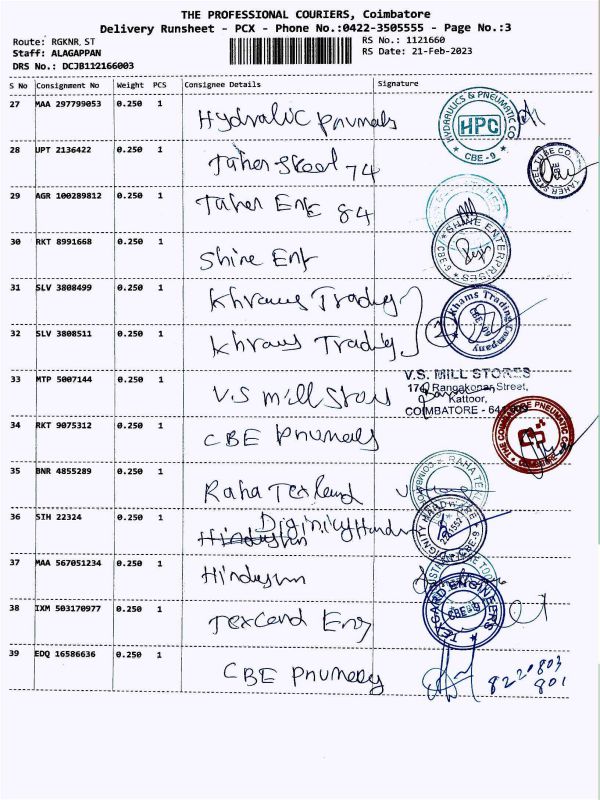 THE PROFESSIONAL COURIERS, Coimbatore
Delivery Runsheet - PCX - Phone No.:0422-3505555 - Page No.:3
Route: RGKNR, ST
RS No.: 1121660
Staff: ALAGAPPAN
RS Date: 21-Feb-2023
DRS No.: DCJB112166003
S No Consignment No Weight PCS Consignee Details Signature
27 MAA 297799053 0.250 1 Hydralic Pnumals
HYDRAULICS & PNEUMATIC CO
HPC
CBE - 9
28 UPT 2136422 0.250 1 Taher Steel 74
TAHER STEEL TUBE CO
CBE
29 AGR 100289812 0.250 1 Taher Ent 84
30 RKT 8991668 0.250 1 Shine Ent
SHINE ENTERPRISES
31 SLV 3808499 0.250 1 Khrams Trading
Khams Trading Company
CBE - 09
32 SLV 3808511 0.250 1 Khrams Trading
2
33 MTP 5007144 0.250 1 V.S Mill Stors
V.S. MILL STORES
174, Rangakonar Street,
Kattoor,
COIMBATORE -
34 RKT 9075312 0.250 1 CBE Pnumals
PNEUMATIC
35 BNR 4855289 0.250 1 Raha Texland
RAHA TEX
36 SIH 22324 0.250 1 Diginity Hardw
DIGNITY HARDWARE
37 MAA 567051234 0.250 1 Hindustan
38 IXM 503170977 0.250 1 Texcard Eng
TEXCARD ENGINEERS
CBE - 9
39 EDQ 16586636 0.250 1 CBE Pnumaty
8220803
801